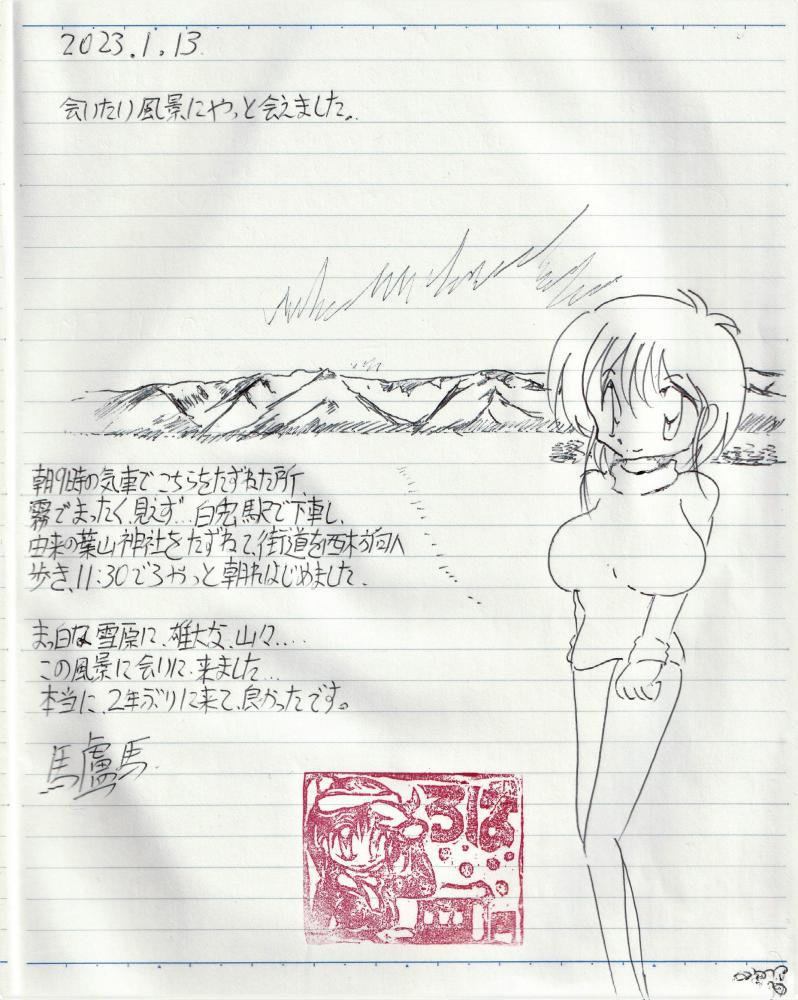 2023.1.13.
会いたい風景にやっと会えました。
朝9時の気車でこちらをたずねた所、
霧でまったく見えず…白兎駅で下車し、
由来の葉山神社をたずねて、街道を西本方向へ
歩き、11:30でろやっと朝れはじめました。
まっ白な雪原に、雄大な、山々....
この風景に会いに、来ました...
本当に、2年ぶりに来て、良かったです。
馬盧馬
ろば